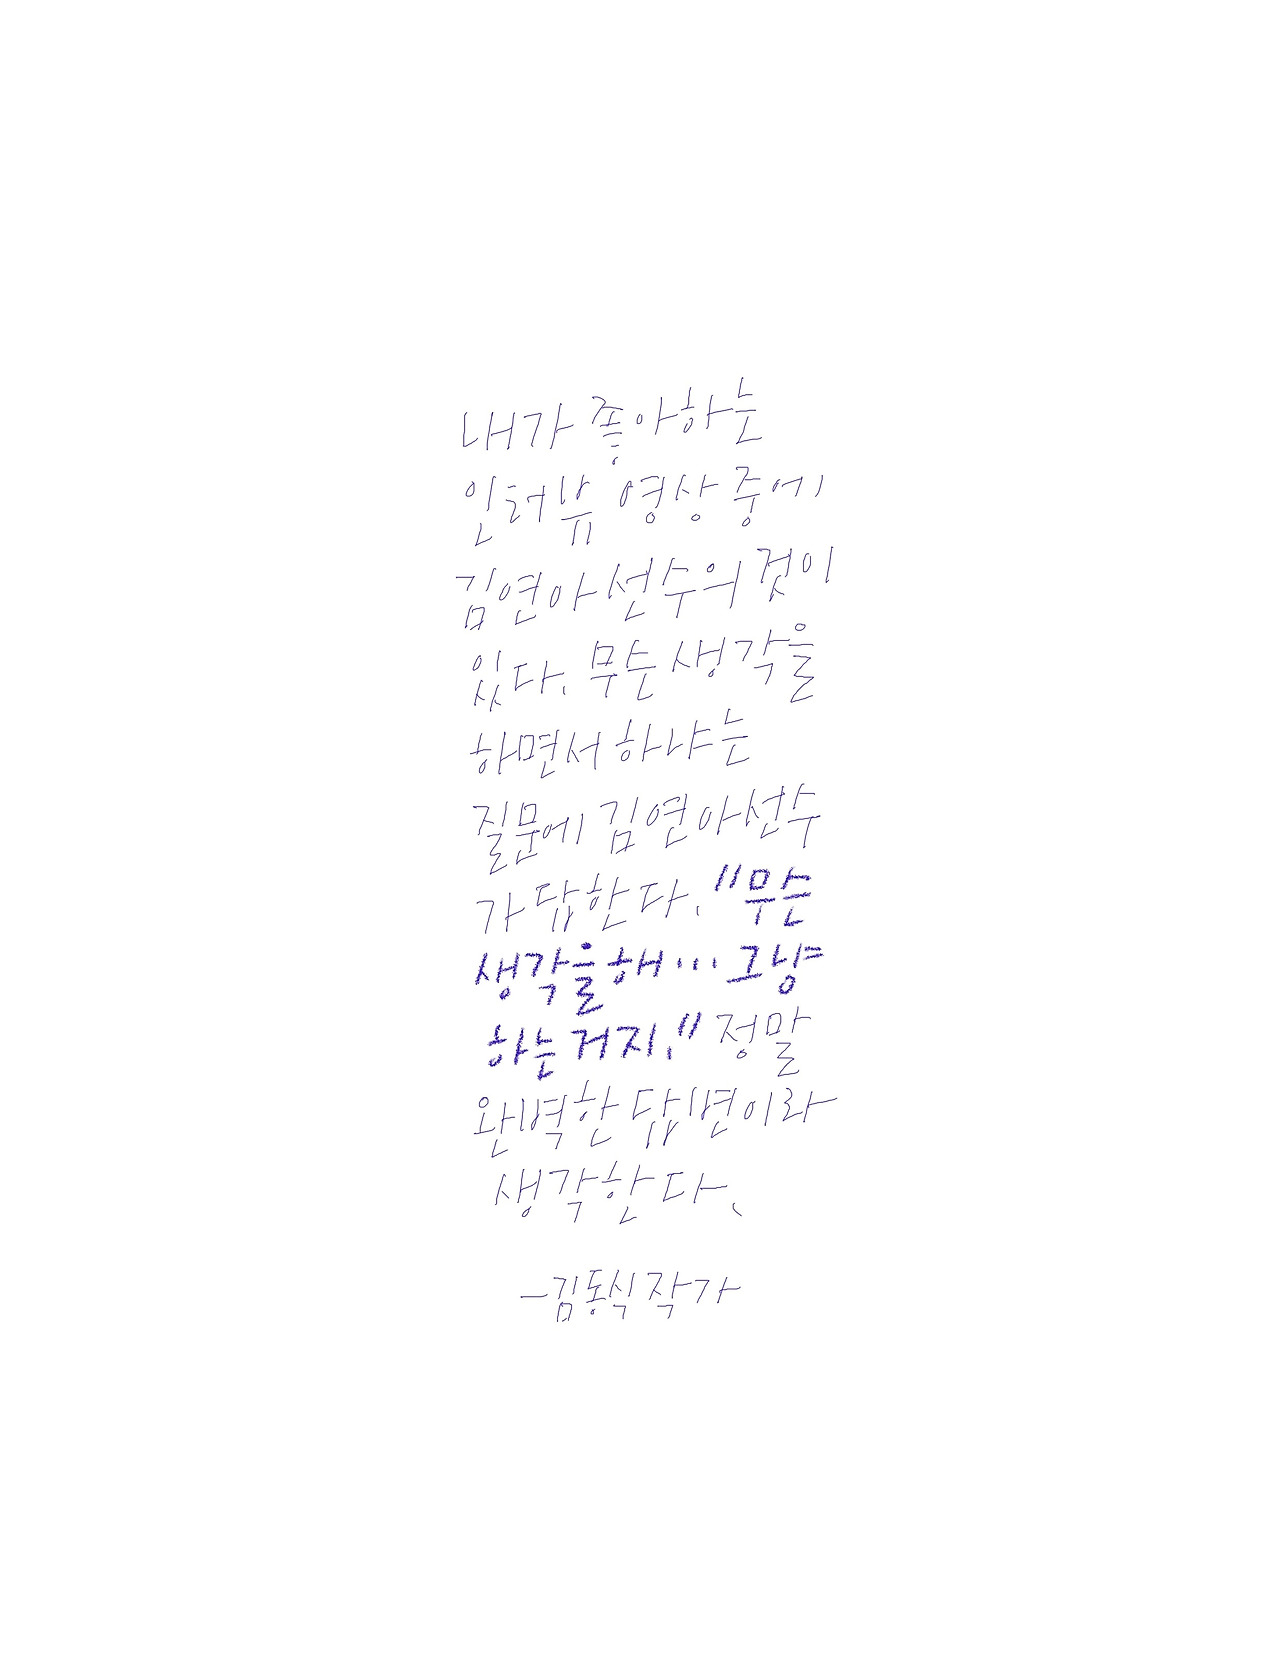 내가 좋아하는
인터뷰 영상 중에
김연아 선수의 것이
있다. 무슨 생각을
하면서 하냐는
질문에 김연아선수
가 답한다. "무슨
생각을해... 그냥
하는 거지." 정말
완벽한 답변이라
생각한다.
-김동식 작가